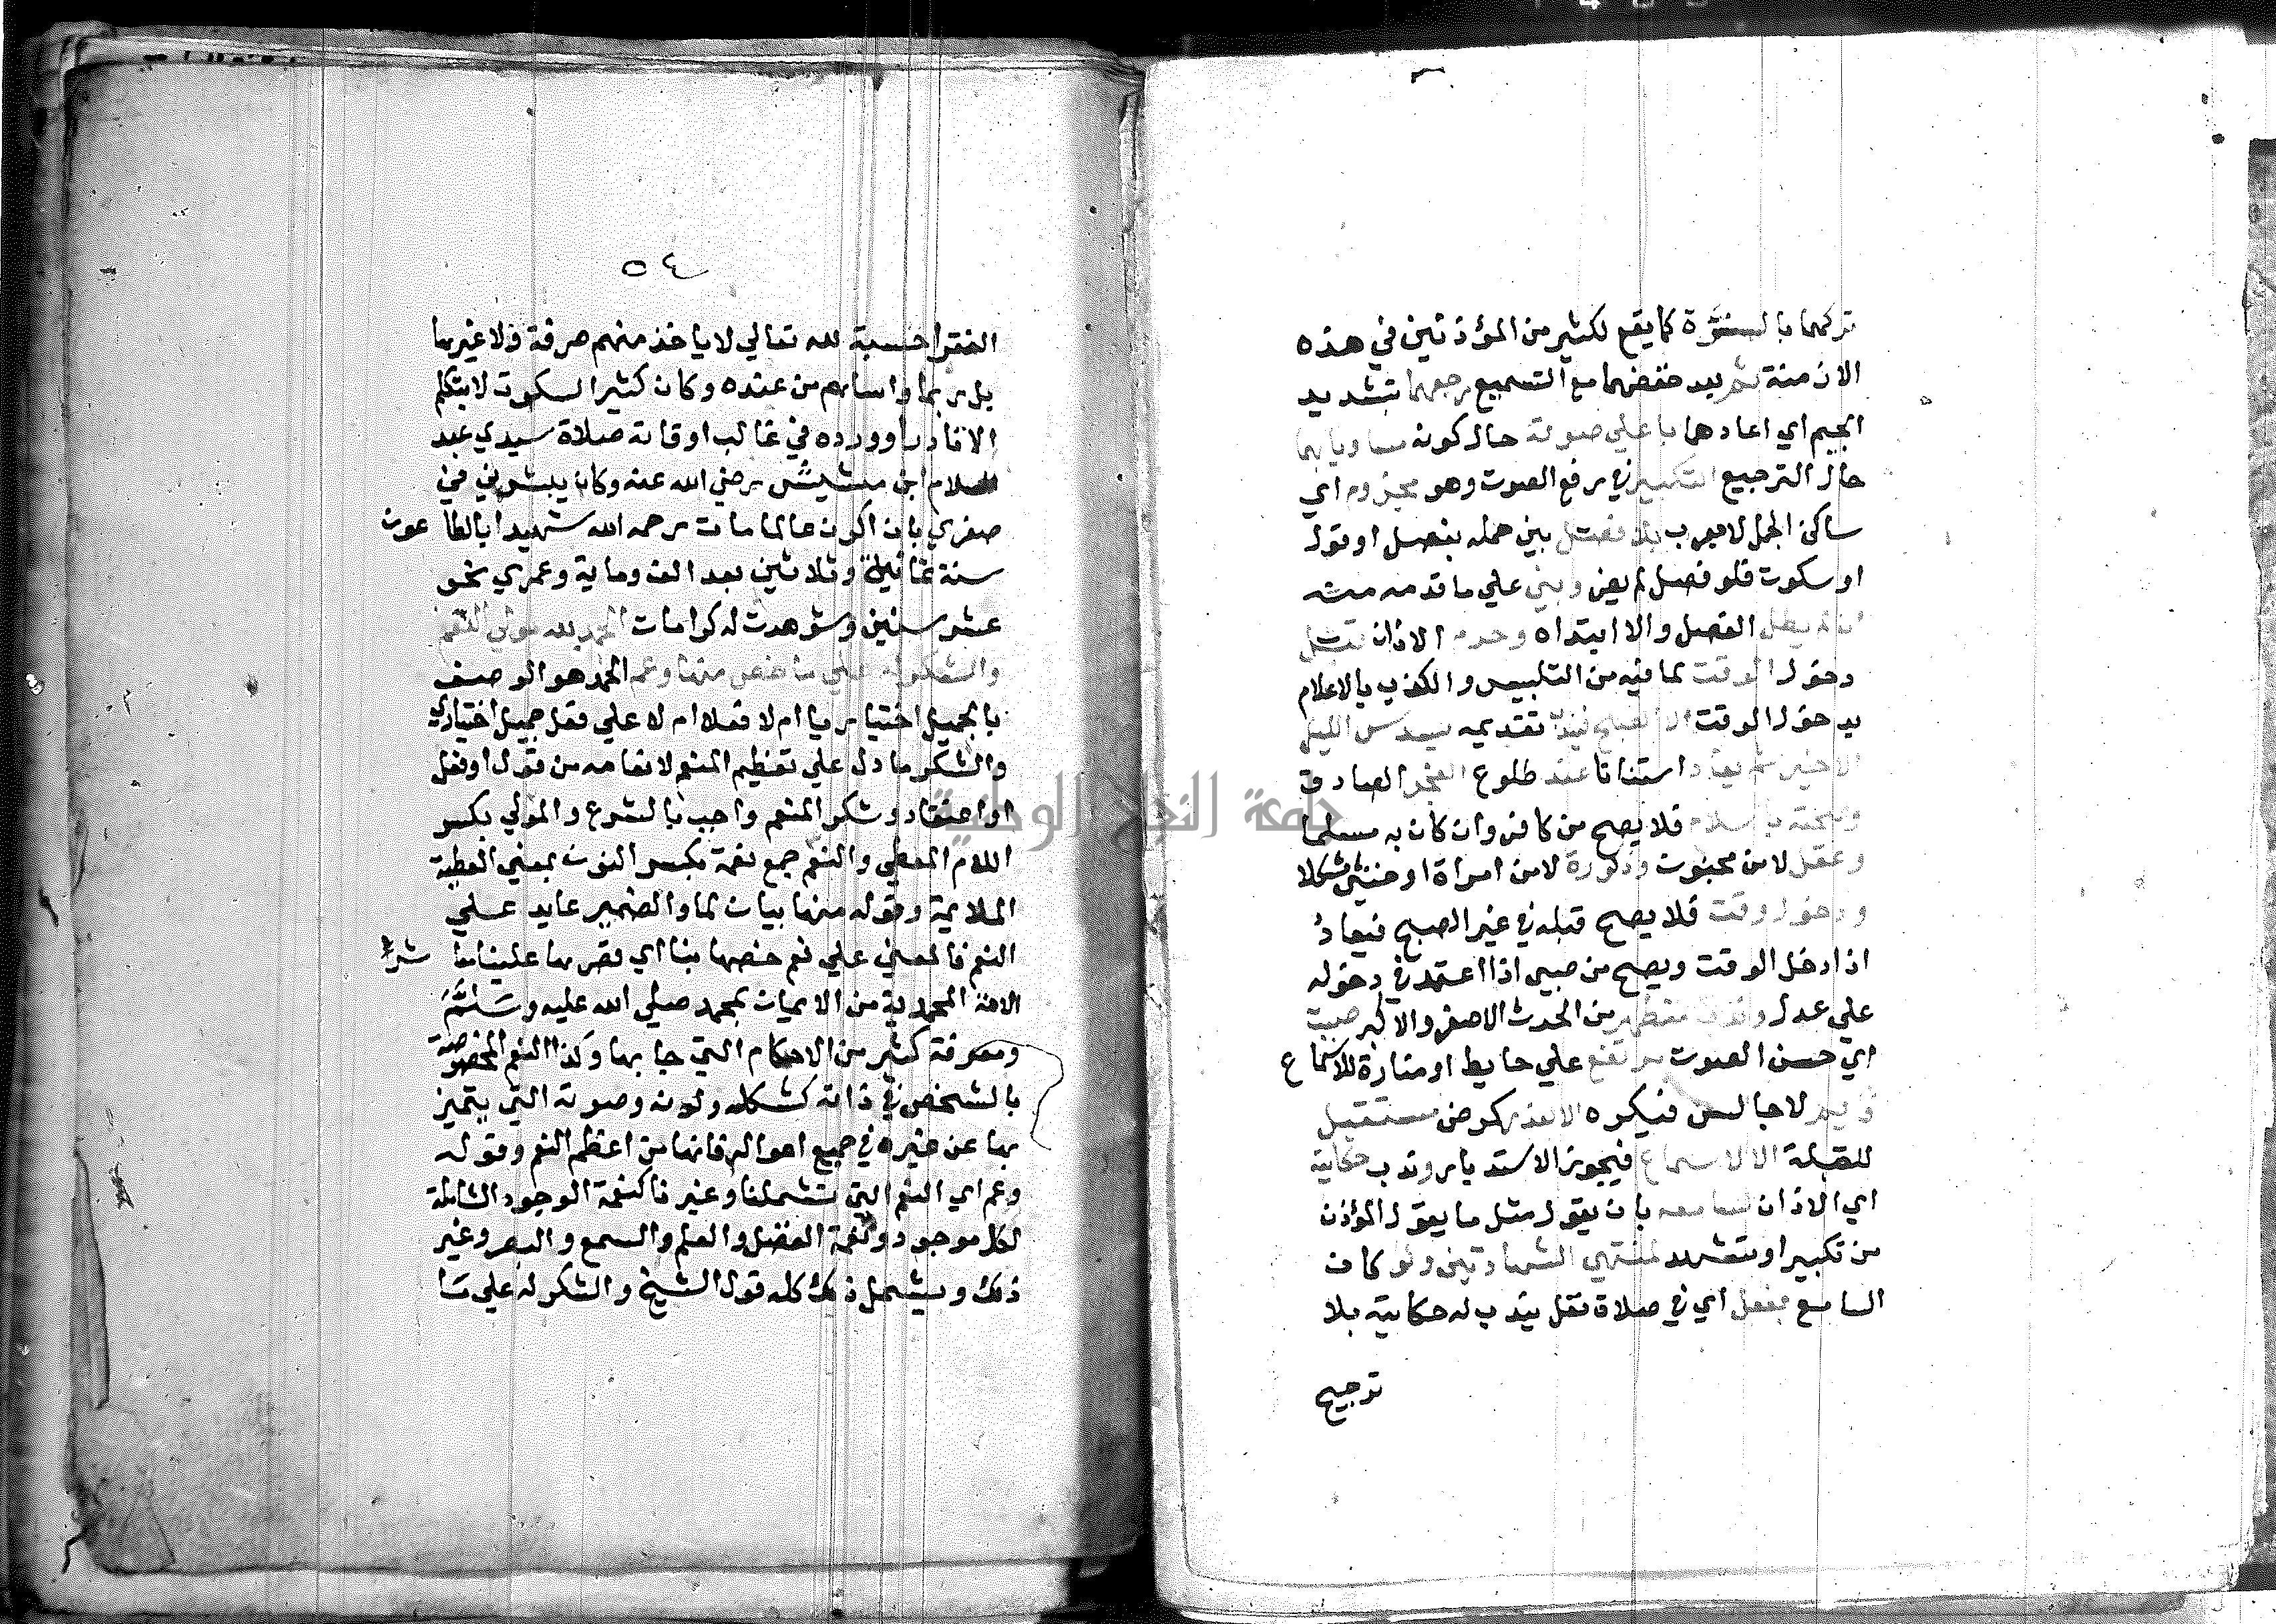 تركهما بالسنة كما يقع لكثير من المؤذنين في هذه
الازمنة ثم بعد خفضهما مع التسميع رجعهما بتشديد
الجيم اي اعادهما باعلي صوته حال كونه مساويا بهما
حال الترجيع التكبير في رفع الصوت وهو مجزوم اي
ساكن الجمل لا معرب بلا فصل بين جمله بفصل او قول
او سكوت فلو فصل لم يضر وبني علي ما قدمه منه
ان لم يطل الفصل والا ابتداه وحرم الاذان قبل
دخول الوقت لما فيه من التلبيس والكذب بالاعلام
بدخول الوقت الا الصبح فيندب تقديمه بسدس الليل
الاخير ثم يعاد استنانا عند طلوع الفجر الصادق
وصحته باسلام فلا يصح من كافر وان كان به مسلما
وعقل لا من مجنون وذكورة لا من امراة او خنثي مشكلا
ودخول وقت فلا يصح قبله في غير الصبح فيعاد
اذا دخل الوقت ويصح من صبي اذا اعتمد في دخوله
علي عدل وندب متطهر من الحدث الاصغر والاكبر صيت
اي حسن الصوت مرتفع علي حايط او منارة للاسماع
قايم لا جالس فيكره الا لعذر كمرض مستقبل
للقبلة الا لاسماع فيجوز الاستدبار وندب حكايته
اي الاذان لسامعه بان يقول مثل ما يقول المؤذن
من تكبير او تشهد لمنتهي الشهادتين ولو كان
السامع بنفل اي في صلاة نفل يندب له حكايته بلا
ترجيع
٥٤
الفقرا حسبة لله تعالي لا ياخذ منهم صرفة ولا غيرها
بل ربما واساهم من عنده وكان كثير السكوت لا يتكلم
الا نادرا وورده في غالب اوقاته صلاة سيدي عبد
السلام ابن مشيش رضي الله عنه وكان يبشرني في
صغري بان اكون عالما مات رحمه الله شهيدا بالطاعون
سنة ثمانية وثلاثين بعد الف وماية وعمري نحو
عشر سنين وشوهدت له كرامات الحمد لله مولي النعم
والشكر له علي ما خص منها وعم الحمد هو الوصف
بالجميل اختياريا ام لا فعلا ام لا علي فعل جميل اختياري
والشكر ما دل علي تعظيم المنعم لانعامه من قول او فعل
او اعتقاد وشكر المنعم واجب بالشرع والمولي بكسر
اللام المعطي والنعم جمع نعمة بكسر النون بمعني العطية
الملايمة وقوله منها بيان لما والضمير عايد علي
النعم فالمعني علي نعم خصها بنا اي قصرها علينا معاشر
الامة المحمدية من الايمان بمحمد صلي الله عليه وسلم
ومعرفة كثير من الاحكام التي جا بها وكذا النعم المختصة
بالشخص في ذاته كشكله ولونه وصوته التي يتميز
بها عن غيره في جميع احواله فانها من اعظم النعم وقوله
وعم اي النعم التي تشملنا وغيرنا كنعمة الوجود الشاملة
لكل موجود وكنعمة الفضل والعلم والسمع والبصر وغير
ذلك ويشمل ذلك كله قول الشيخ والشكر له علي ما
جامعة النجاح الوطنية